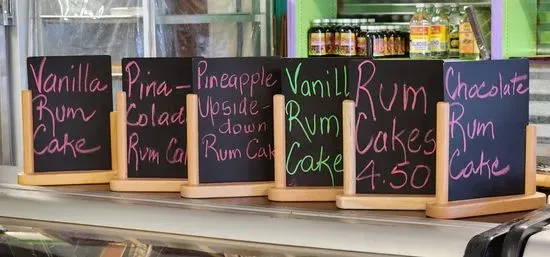 Vanilla
Rum
Cake
Pina-
Colada
Rum Cake
Pineapple
Upside-
down
Rum Cake
Vanill
Rum
Cake
Rum
Cakes
4.50
Chocolate
Rum
Cake